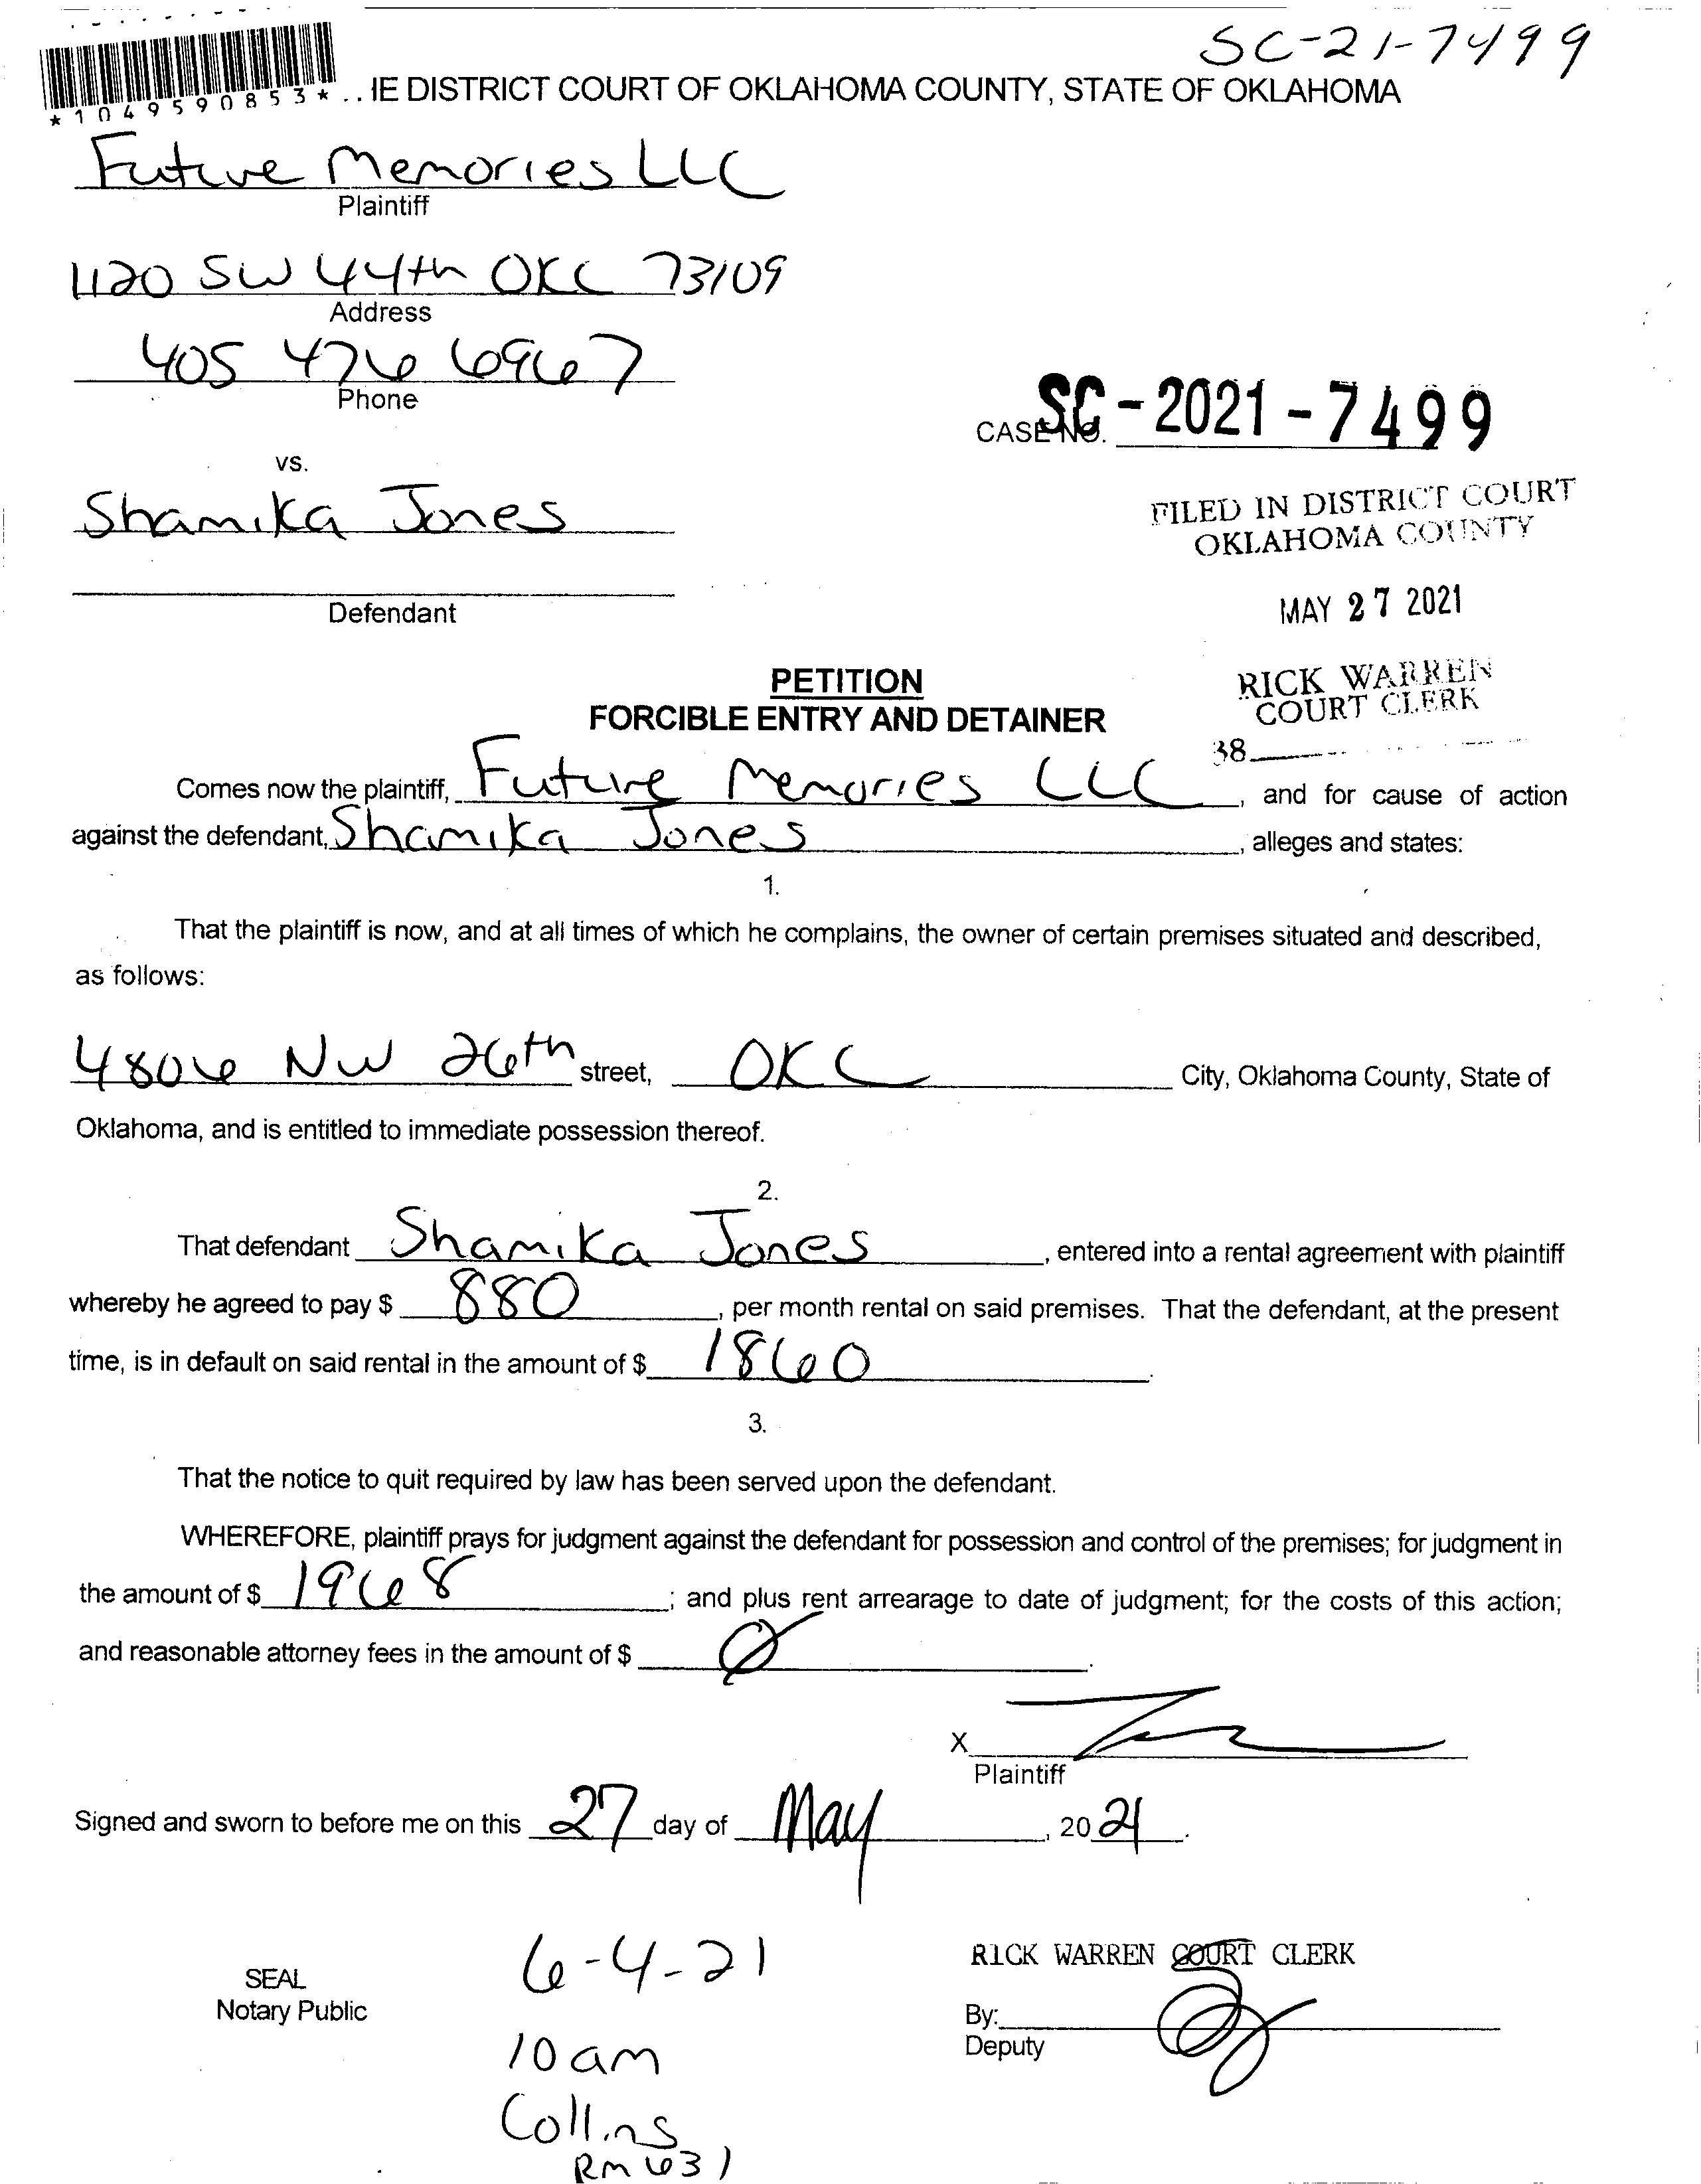 SC-21-7499
*1049590853* .. IE DISTRICT COURT OF OKLAHOMA COUNTY, STATE OF OKLAHOMA
Future Memories LLC
Plaintiff
1120 SW 44th OKC 73109
Address
405 476 6967
Phone
CASE NO. SC-2021-7499
vs.
Shamika Jones
FILED IN DISTRICT COURT
OKLAHOMA COUNTY
Defendant
MAY 27 2021
PETITION
RICK WARREN
COURT CLERK
FORCIBLE ENTRY AND DETAINER
38
Comes now the plaintiff, Future Memories LLC, and for cause of action
against the defendant, Shamika Jones, alleges and states:
1.
That the plaintiff is now, and at all times of which he complains, the owner of certain premises situated and described,
as follows:
4806 NW 26th street, OKC City, Oklahoma County, State of
Oklahoma, and is entitled to immediate possession thereof.
2.
That defendant Shamika Jones, entered into a rental agreement with plaintiff
whereby he agreed to pay $ 880, per month rental on said premises. That the defendant, at the present
time, is in default on said rental in the amount of $ 1860.
3.
That the notice to quit required by law has been served upon the defendant.
WHEREFORE, plaintiff prays for judgment against the defendant for possession and control of the premises; for judgment in
the amount of $ 1968; and plus rent arrearage to date of judgment; for the costs of this action;
and reasonable attorney fees in the amount of $ Ø.
X
Plaintiff
Signed and sworn to before me on this 27 day of May, 2021.
6-4-21
RICK WARREN COURT CLERK
SEAL
Notary Public
By:
Deputy
10 am
Collins
Rm 631